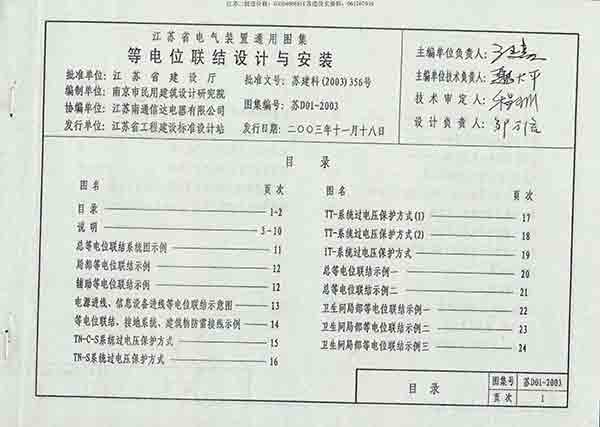 江苏省电气装置通用图集
等电位联结设计与安装
批准单位: 江苏省建设厅
批准文号: 苏建科(2003)356号
编制单位: 南京市民用建筑设计研究院
协编单位: 江苏南通信达电器有限公司
图集编号: 苏D01-2003
发行单位: 江苏省工程建设标准设计站
发行日期: 二〇〇三年十一月十八日
主编单位负责人:
主编单位技术负责人:
技术审定人:
设计负责人:
目录
图名 页次
目录 1-2
说明 3-10
总等电位联结系统图示例 11
局部等电位联结示例 12
辅助等电位联结示例 12
电源进线、信息设备进线等电位联结示意图 13
等电位联结、接地系统、建筑物防雷接线示例 14
TN-C-S系统过电压保护方式 15
TN-S系统过电压保护方式 16
图名 页次
TT-系统过电压保护方式(1) 17
TT-系统过电压保护方式(2) 18
IT-系统过电压保护方式 19
总等电位联结示例一 20
总等电位联结示例二 21
卫生间局部等电位联结示例一 22
卫生间局部等电位联结示例二 23
卫生间局部等电位联结示例三 24
目录
图集号 苏D01-2003
页次 1